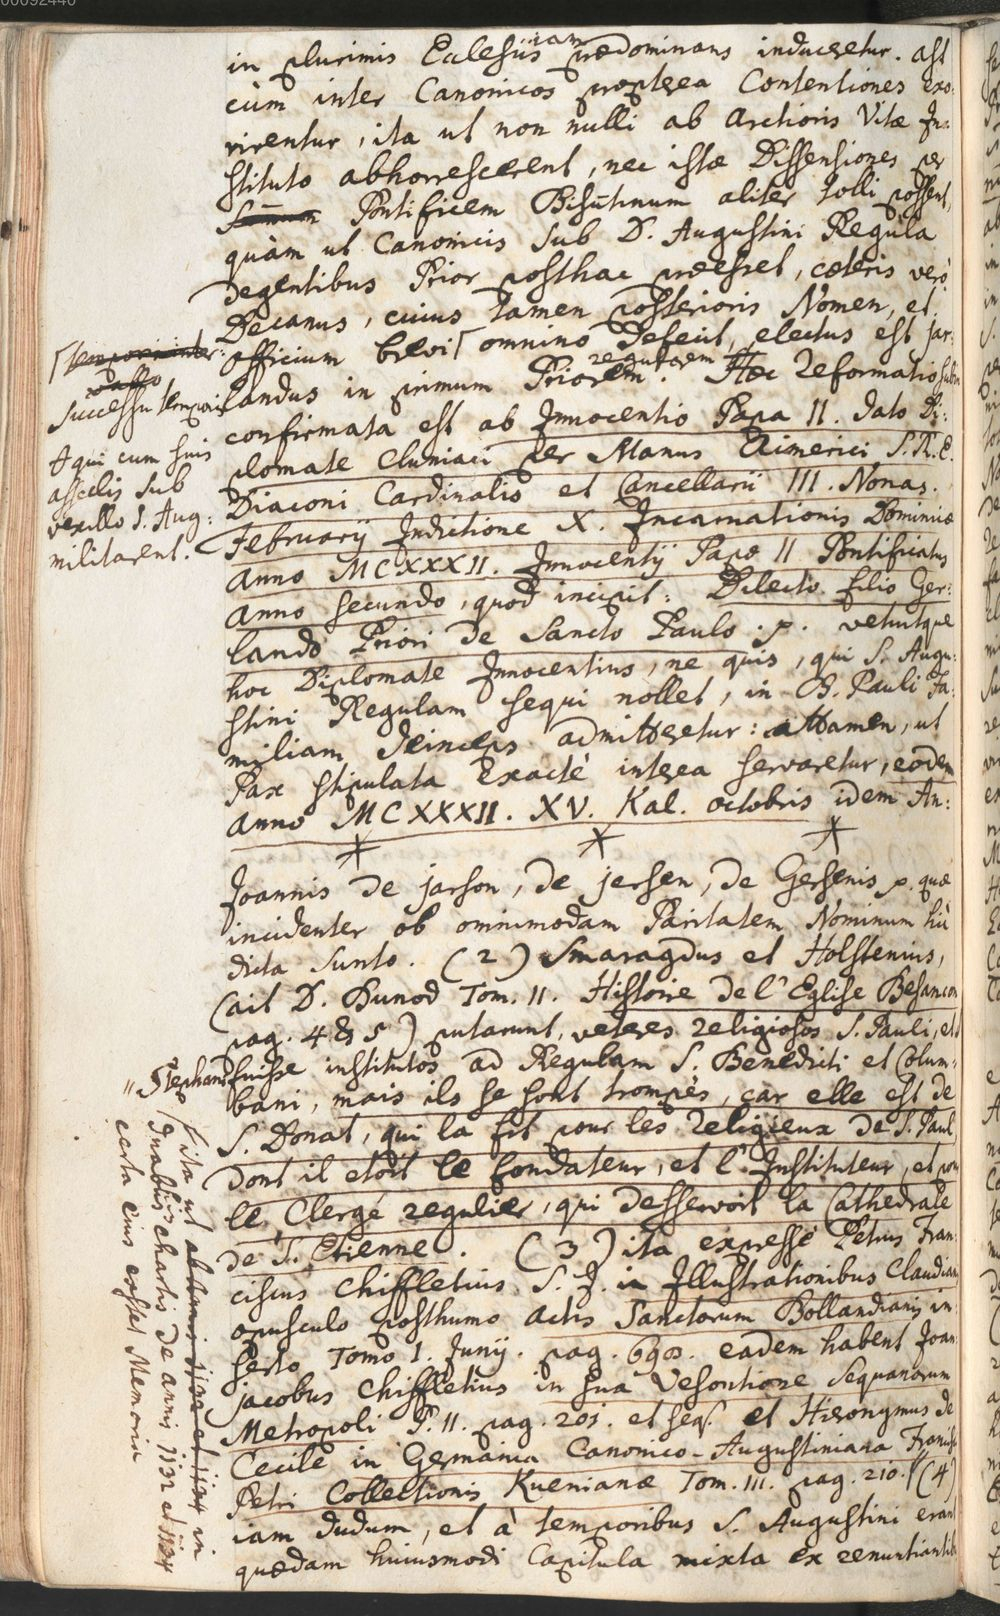 00092440
in plurimis Ecclesiis iam prædominans induceretur. ast
cùm inter Canonicos propterea Contentiones exo:
rirentur, ita ut non nulli ab arctioris Vitæ In:
stituto abhorrescerent, nec istæ Dissensiones per
Pontificem Bisūtinum aliter tolli possent,
quàm ut Canonicis sub D. Augustini Regula
degentibus Prior posthac præesset, cæteris verò
Decanus, cuius tamen posterioris Nomen, et
officium brevi omnino defecit, electus est jar:
landus in primum Priorem regularem. Hæc Reformatio
confirmata est ab Innocentio Papa II. dato Di:
plomate Cluniaci per Manus Eimerici S.R.E.
Diaconi Cardinalis et Cancellarii III. Nonas.
Februarij Indictione X. Incarnationis Dominicæ
anno MCXXXII. Innocentij Papæ II Pontificatus
anno secundo, quod incipit: Dilecto filio Ger:
lando Priori de Sancto Paulo. p. vetuitque
hoc Diplomate Innocentius, ne quis, qui S. Augu:
stini Regulam sequi nollet, in S. Pauli Fa:
miliam deinceps admitteretur: attamen, ut
Pax stipulata exactè interea servaretur, eodem
anno MCXXXII. XV. Kal. octobris idem An:
successu temporis
qui cum suis
asseclis sub
vexillo S. Aug:
militarent.
Joannis de jarson, de jersen, de Gersenis p. quæ
incidenter ob omnimodam Paritatem Nominum hìc
dicta sunto. (2) Smaragdus et Holstenius,
(ait D. Dunod Tom. II. Histoire de l'Eglise Besançon
pag. 4 & 5) putarunt, veteres religiosos S. Pauli, et
Stephani fuisse institutos ad Regulam S. Benedicti et Colum:
bani, mais ils se sont trompès, car elle est de
S. Donat, qui la fit pour les Religieux de S. Paul
dont il etoit le fondateur, et l'Instituteur, et pour
le Clergé regulier, qui desservoit la Cathedrale
de S. Etienne. (3) ita expressè Petrus Fran:
ciscus Chiffletius S. J. in Illustrationibus Claudian
opusculo posthumo actis Sanctorum Bollandianis in:
serto Tomo I. Junij. pag. 690. eadem habent Joan
jacobus Chiffletius in sua Vesontione Sequanorum
Metropoli P. II. pag. 201. et seq. et Hieronymus de
Cecile in Germania Canonico-Augustiniana Francisci
Petri Collectionis Kuenianæ Tom. III. pag. 210. (4)
iam dudum, et à temporibus S. Augustini erant
quædam huiusmodi Capitula mixta ex renuntiantib
ita ut in
durabilis chartis de annis 1132 et 1134
certa eius esset Memoria